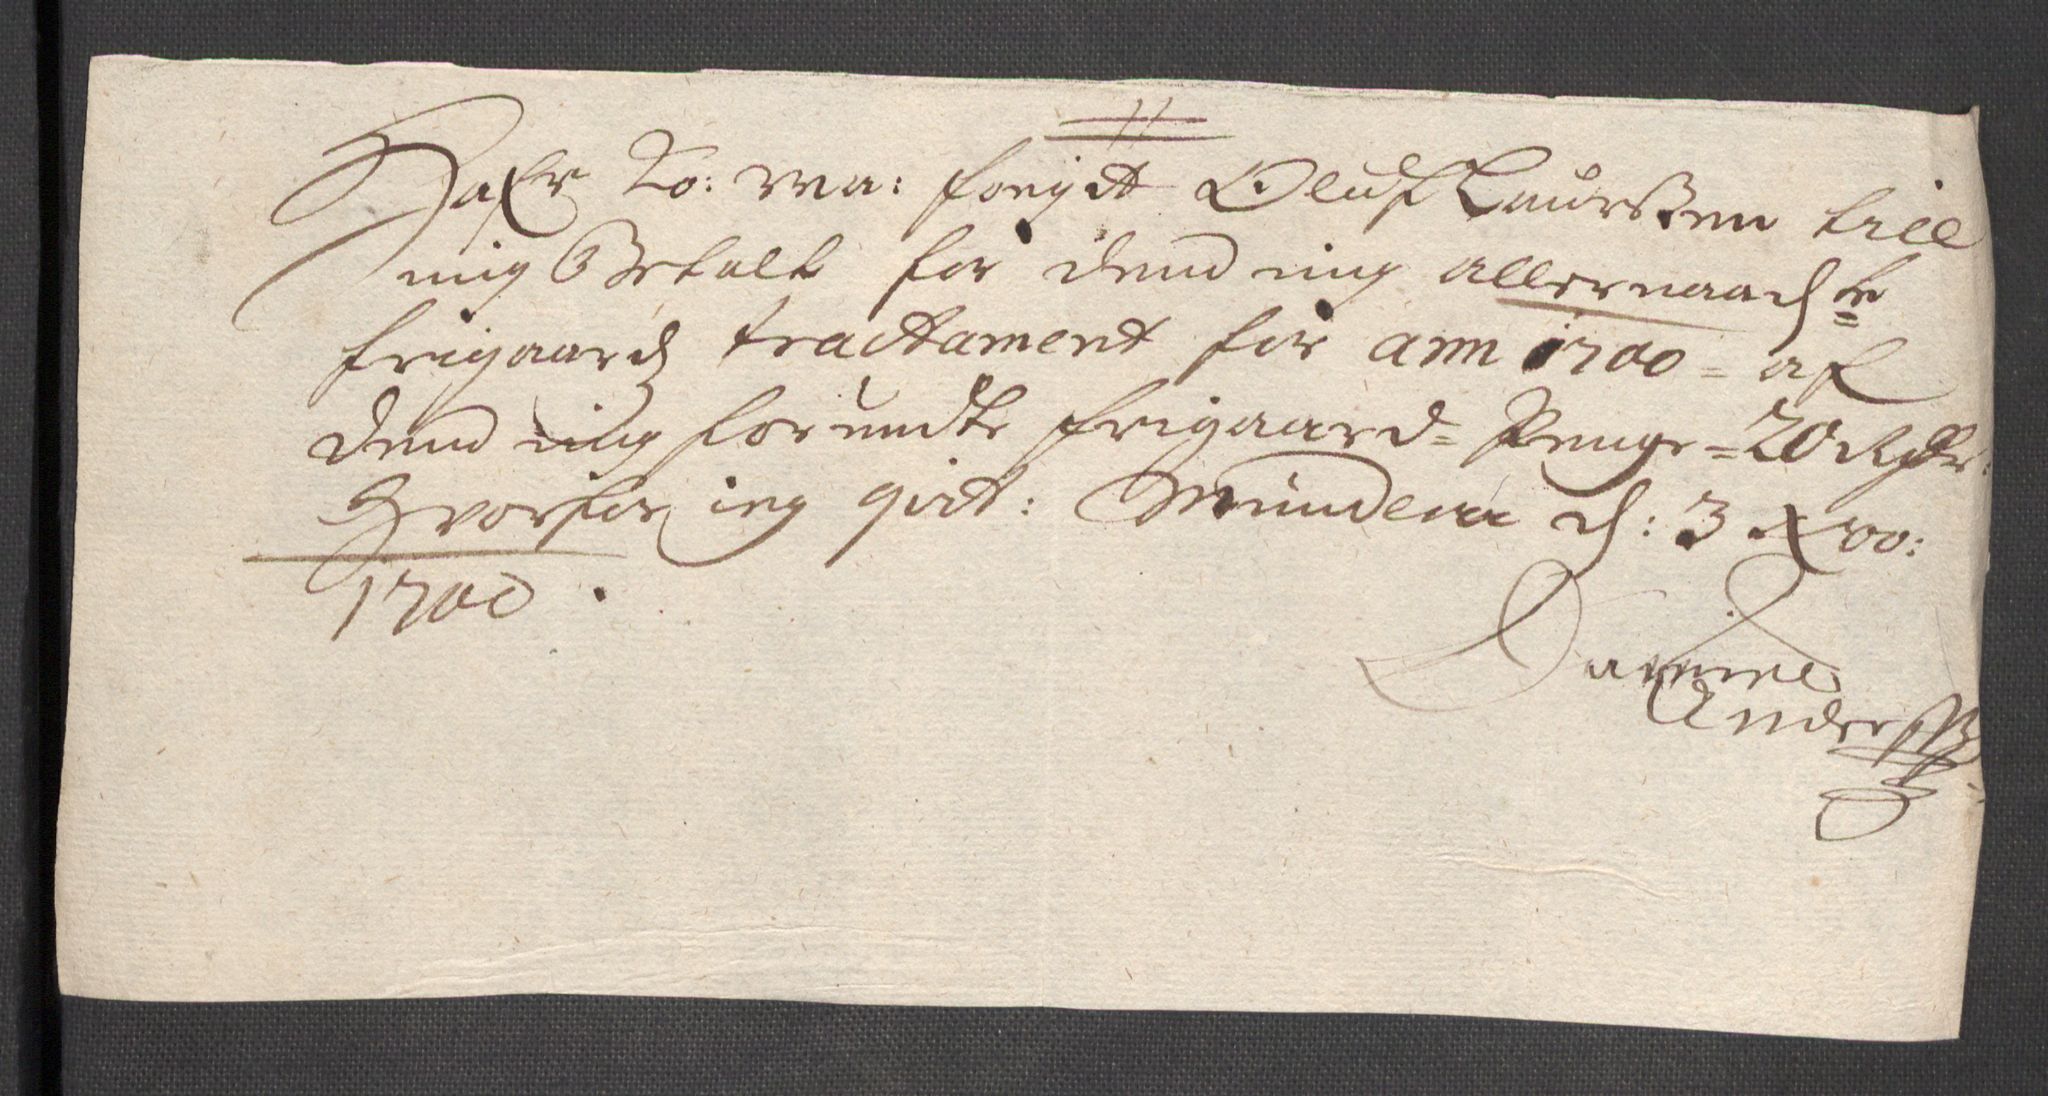 Hafr Ko: Ma: fogit Oluf Laurssen till
mig Betalt for dend mig allernaadste
frigaards tractament for ann 1700 = af
dend mig forundte frigaard = Penge = 20 Rdr:
Hvorfor ieg qvit: Munden d: 3 Xbr:
1700.
Daniel
Anderss